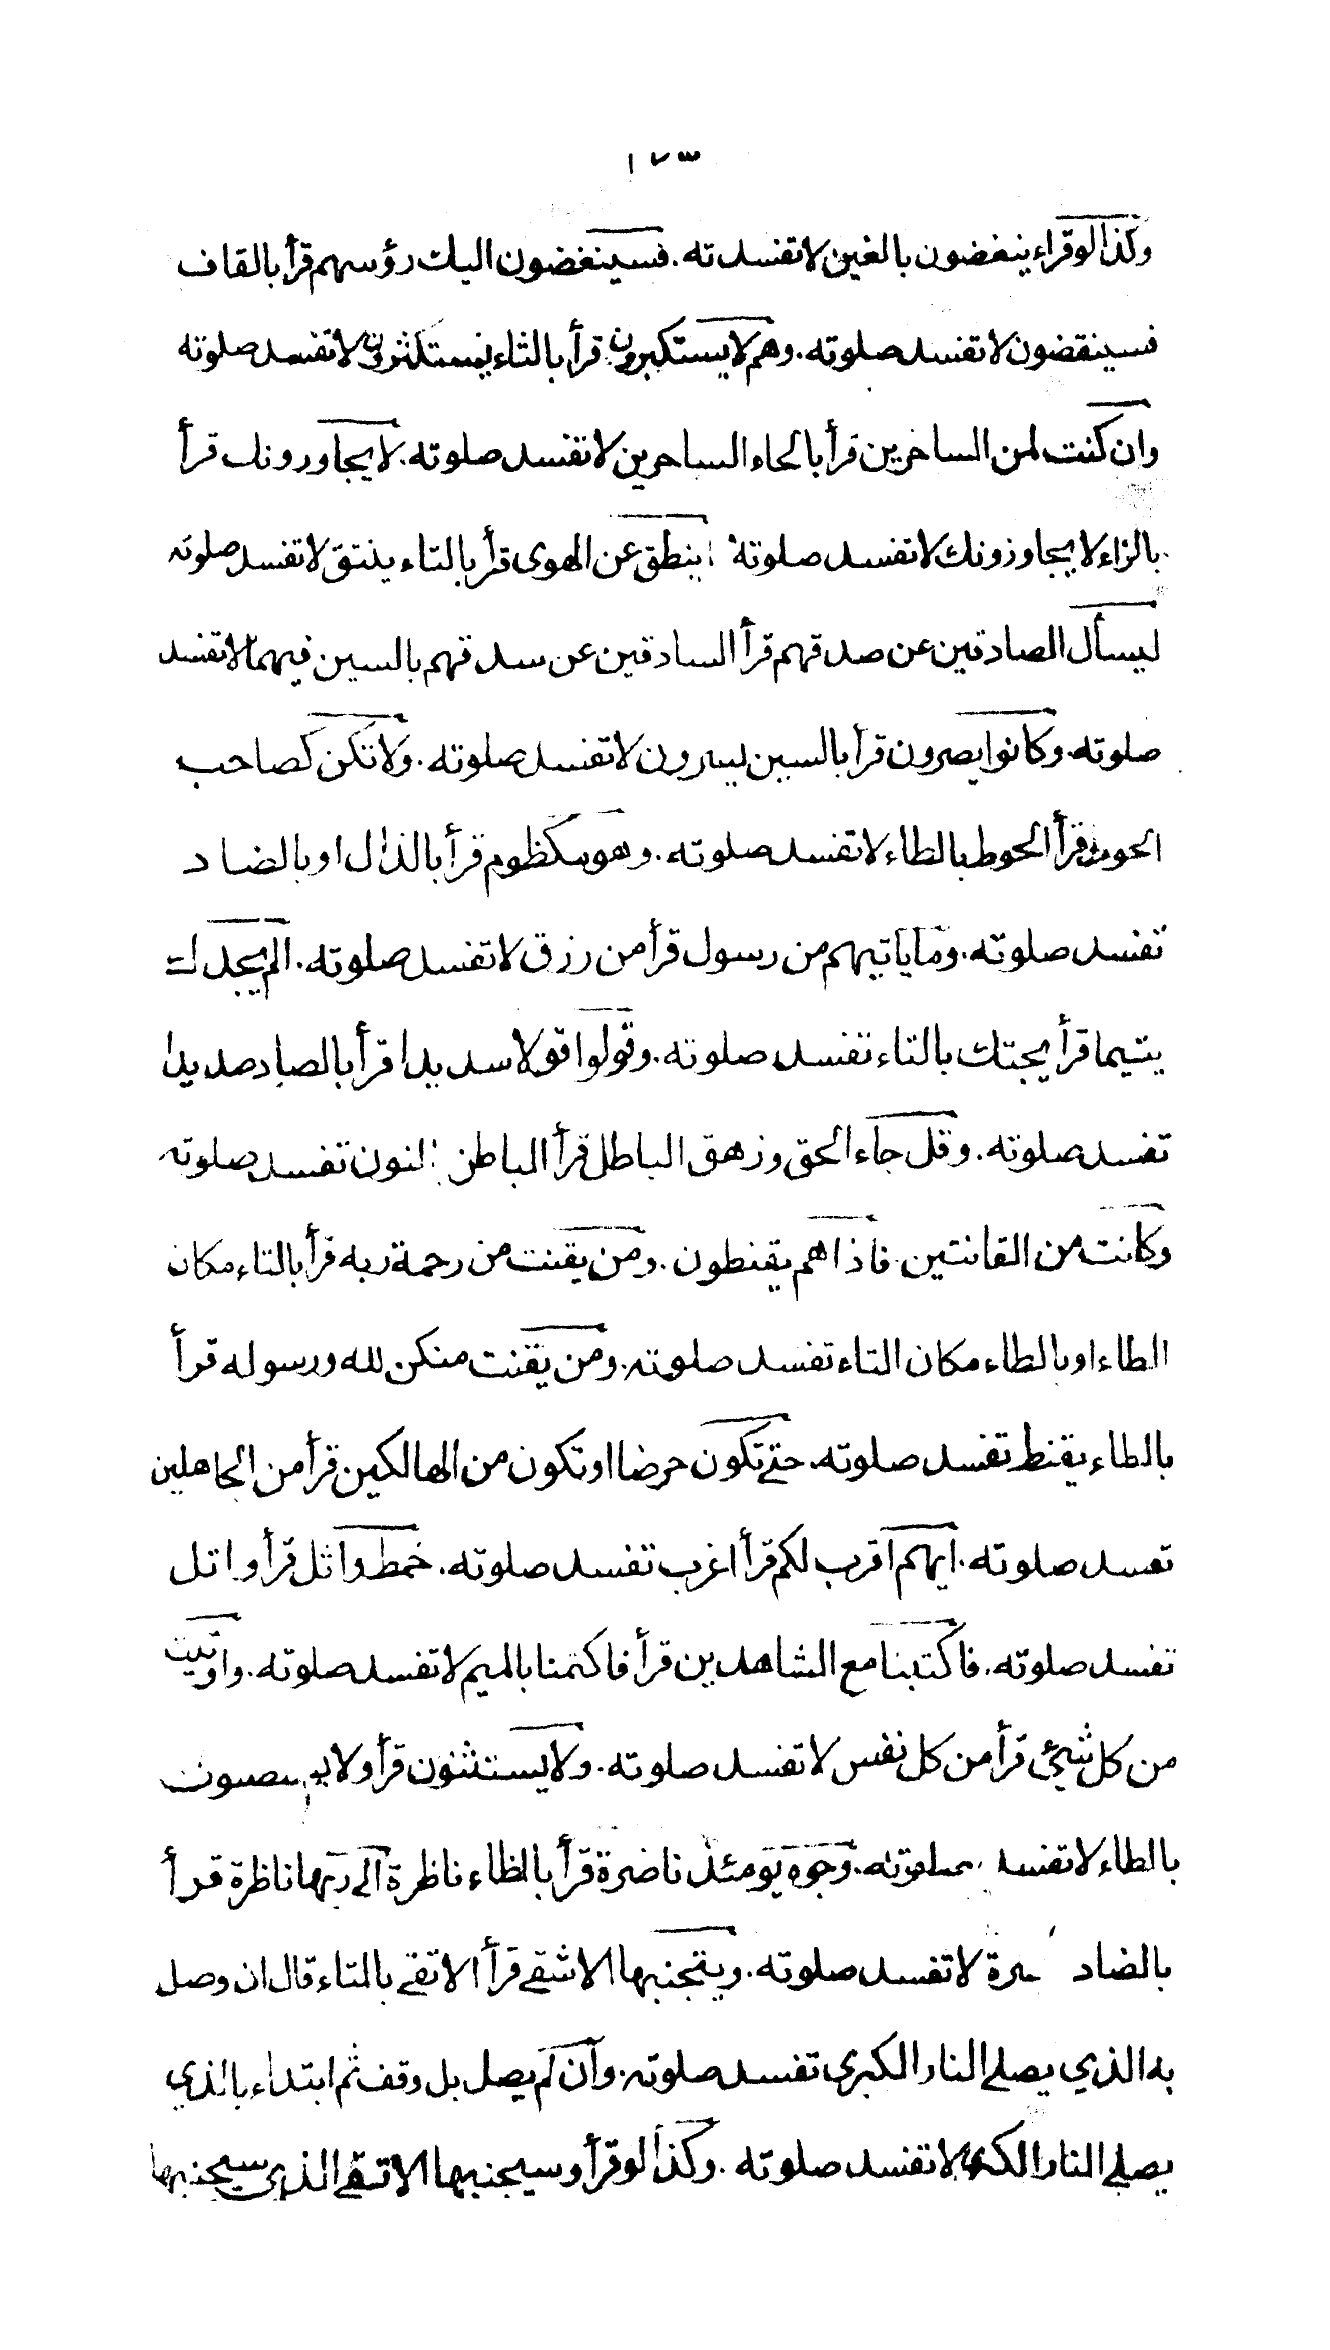 ١٧٣
وكذا لو قراء ينغضون بالغين لا تفسد ته . فسينغضون اليك رؤسهم قرأ بالقاف
فسينقضون لا تفسد صلوته . وهم لا يستكبرون قرأ بالثاء يستكثرون لا تفسد صلوته
وان كنت لمن الساخرين قرأ بالحاء الساحرين لا تفسد صلوته . لا يجاورونك قرأ
بالزاء لا يجاوزونك لا تفسد صلوته ينطق عن الهوى قرأ بالتاء ينتق لا تفسد صلوته
ليسأل الصادقين عن صدقهم قرأ السادقين عن سدقهم بالسين فيهما لا تفسد
صلوته . وكانوا يصرون قرأ بالسين يسرون لا تفسد صلوته . ولا تكن كصاحب
الحوت قرأ الحوط بالطاء لا تفسد صلوته . وهو مكظوم قرأ بالذال او بالضاد
تفسد صلوته . وما ياتيهم من رسول قرأ من رزق لا تفسد صلوته . الم يجدك
يتيما قرأ يجتك بالتاء تفسد صلوته . وقولوا قولا سديدا قرأ بالصاد صديدا
تفسد صلوته . وقل جاء الحق وزهق الباطل قرأ الباطن النون تفسد صلوته
وكانت من القانتين . فاذا هم يقنطون . ومن يقنت من رحمة ربه قرأ بالتاء مكان
الطاء او بالطاء مكان التاء تفسد صلوته . ومن يقنت منكن لله ورسوله قرأ
بالطاء يقنط تفسد صلوته . حتى تكون حرضا او تكون من الهالكين قرأ من الجاهلين
تفسد صلوته . ايهم اقرب لكم قرأ اغرب تفسد صلوته . خمط واثل قرأ واتل
تفسد صلوته . فاكتبنا مع الشاهدين قرأ فاكتمنا بالميم لا تفسد صلوته . واوتيت
من كل شيئ قرأ من كل نفس لا تفسد صلوته . ولا يستثنون قرأ ولا
بالطاء لا تفسد صلوته . وجوه يومئذ ناضرة قرأ بالظاء ناظرة الى ربها ناظرة قرأ
بالضاد لا تفسد صلوته . ويتجنبها الاشقى قرأ الاتقى بالتاء قال ان وصل
به الذي يصلى النار الكبرى تفسد صلوته . وان لم يصل بل وقف ثم ابتداء بالذي
يصلى النار الكبرى لا تفسد صلوته . وكذا لو قرأ وسيجنبها الاتقى الذي سيجنبها